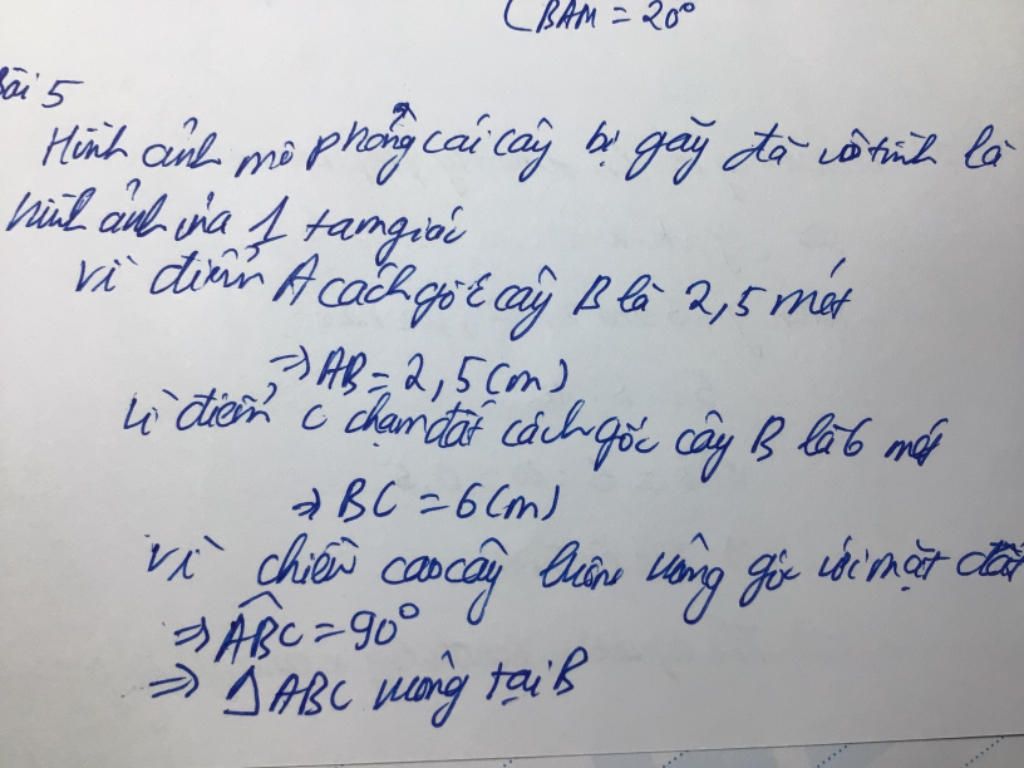 BAM = 20°
Bài 5
Hình ảnh mô phỏng cái cây bị gãy đã vô tình là
hình ảnh của 1 tam giác
Vì điểm A cách gốc cây B là 2,5 mét
=> AB = 2,5 (m)
Vì điểm C chạm đất cách gốc cây B là 6 mét
=> BC = 6 (m)
Vì chiều cao cây luôn vuông góc với mặt đất
=> \widehat{ABC} = 90°
=> Δ ABC vuông tại B